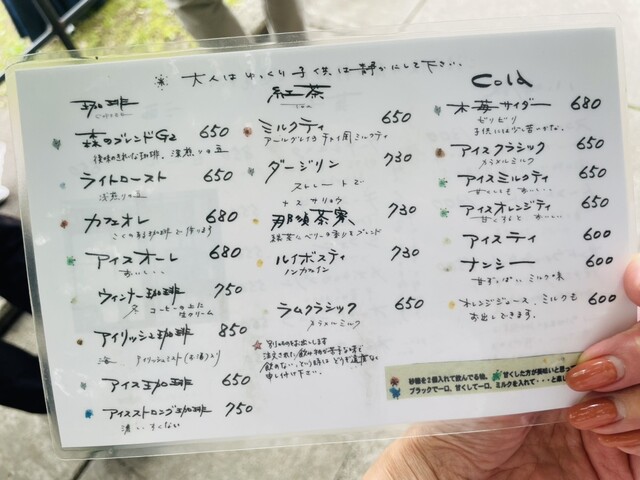 ※ 大人はゆっくり子供は静かにして下さい。
珈琲
COFFEE
森のブレンドG2 650
後味のきれいな珈琲。深煎りの豆
ライトロースト 650
浅煎りの豆
カフェオレ 680
こくのある珈琲で作ります
アイスオーレ 680
おいしい・・・
ウィンナー珈琲 750
コーヒーの上に生クリーム
アイリッシュ珈琲 850
アイス珈琲 650
アイスストロング珈琲 750
濃い、少ない
紅茶
Tea
ミルクティ 650
アールグレイかチャイ用ミルクティ
ダージリン 730
ストレートで
ナスサリョウ
那須茶寮 730
紅茶にベリーの香りをブレンド
ルイボスティ 730
ノンカフェイン
ラムクラシック 650
ラムメルミルク
☆ 別のものをお出しします
注文された飲み物が苦手な味で
飲めない、という時は どうぞ遠慮なく
申し付け下さい。
Cold
木苺サイダー 680
ピリピリ
子供には少し苦いかな。
アイスクラシック 650
カラメルミルク
アイスミルクティ 650
甘くしても おいしい・・・
アイスオレンジティ 650
甘くすると おいしい
アイスティ 600
ナンシー 600
甘ずっぱい ミルク味
オレンジジュース、ミルクも 600
お出しできます。
砂糖を2個入れて飲んでる味、
甘くした方が美味いと思っ
ブラックで一口、甘くして一口、ミルクを入れて・・・と楽し